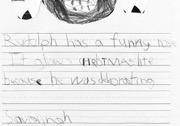 Rudolph has a funny nose
It glows CHRISTMAS lite
because he was deborating
Savannah